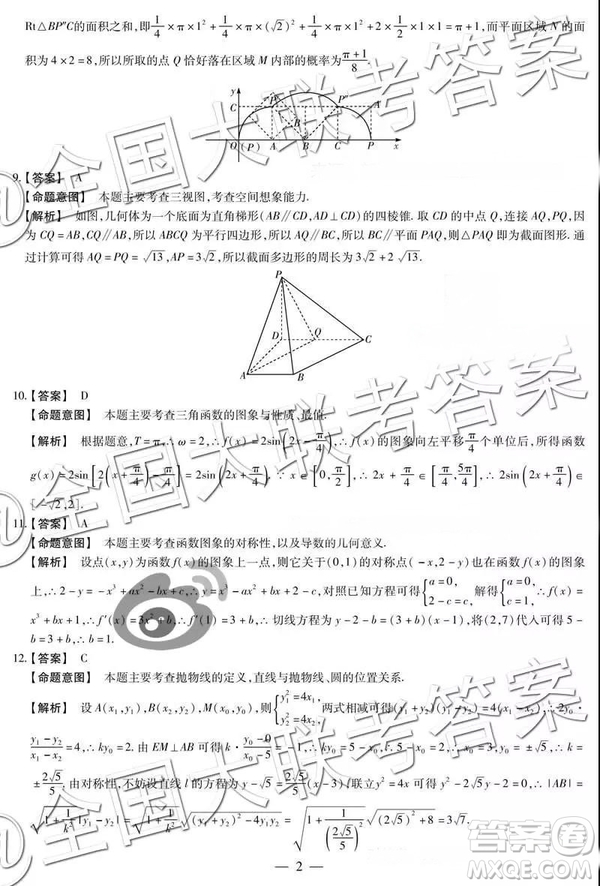 Rt△BP″C的面积之和,即1/4×π×1²+1/4×π×(√2)²+1/4×π×1²+2×1/2×1×1=π+1,而平面区域 N 的面
积为 4×2=8,所以所取的点 Q 恰好落在区域 M 内部的概率为(π+1)/8.
y
C P′ P″ A
O (P) A B C P x
9.【答案】 A
【命题意图】 本题主要考查三视图,考查空间想象能力.
【解析】 如图,几何体为一个底面为直角梯形(AB∥CD,AD⊥CD)的四棱锥. 取 CD 的中点 Q,连接 AQ,PQ,因
为 CQ=AB,CQ∥AB,所以 ABCQ 为平行四边形,所以 AQ∥BC,所以 BC∥平面 PAQ,则△PAQ 即为截面图形. 通
过计算可得 AQ=PQ=√13,AP=3√2,所以截面多边形的周长为 3√2+2√13.
P
D Q C
A B
10.【答案】 D
【命题意图】 本题主要考查三角函数的图象与性质、最值.
【解析】 根据题意,T=π,∴ω=2,∴f(x)=2sin(2x-π/4),∴f(x)的图象向左平移π/4个单位后,所得函数
g(x)=2sin[2(x+π/4)-π/4]=2sin(2x+π/4),∵x∈[0,π/2],∴2x+π/4∈[π/4,5π/4],∴2sin(2x+π/4)∈
[-√2,2].
11.【答案】 A
【命题意图】 本题主要考查函数图象的对称性,以及导数的几何意义.
【解析】 设点(x,y)为函数 f(x)的图象上一点,则它关于(0,1)的对称点(-x,2-y)也在函数 f(x)的图象
上,∴2-y=-x³+ax²-bx+c,∴y=x³-ax²+bx+2-c,对照已知方程可得{a=0, 2-c=c, 解得{a=0, c=1,∴f(x)=
x³+bx+1,∴f′(x)=3x²+b,∴f′(1)=3+b,∴切线方程为 y-2-b=(3+b)(x-1),将(2,7)代入可得 5-
b=3+b,∴b=1.
12.【答案】 C
【命题意图】 本题主要考查抛物线的定义,直线与抛物线、圆的位置关系.
【解析】 设 A(x₁,y₁),B(x₂,y₂),M(x₀,y₀),则{y₁²=4x₁, y₂²=4x₂, 两式相减可得(y₁+y₂)(y₁-y₂)=4(x₁-x₂),∴2y₀·
(y₁-y₂)/(x₁-x₂)=4,∴ky₀=2. 由 EM⊥AB 可得 k·
±2√5/5. 由对称性,不妨设直线 l 的方程为 y-√5=2√5/5(x-3),与 l 联立 y²=4x 可得 y²-2√5y+8=0,∴|AB|=
√(1+1/k²)|y₁-y₂|=√(1+1/k²)√((y₁+y₂)²-4y₁y₂)=
— 2 —
@全国大联考答案
@全国大联考答案
@全国大联考答案
答案圈
MXQE.COM